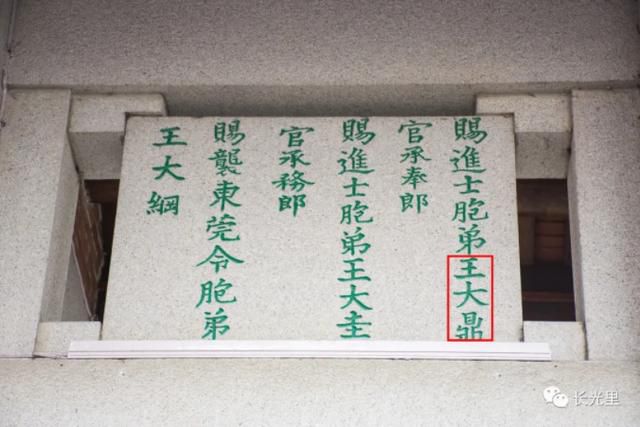 賜進士胞弟王大鼎
官承奉郎
賜進士胞弟王大圭
官承務郎
賜襲東莞令胞弟
王大綱
长光里